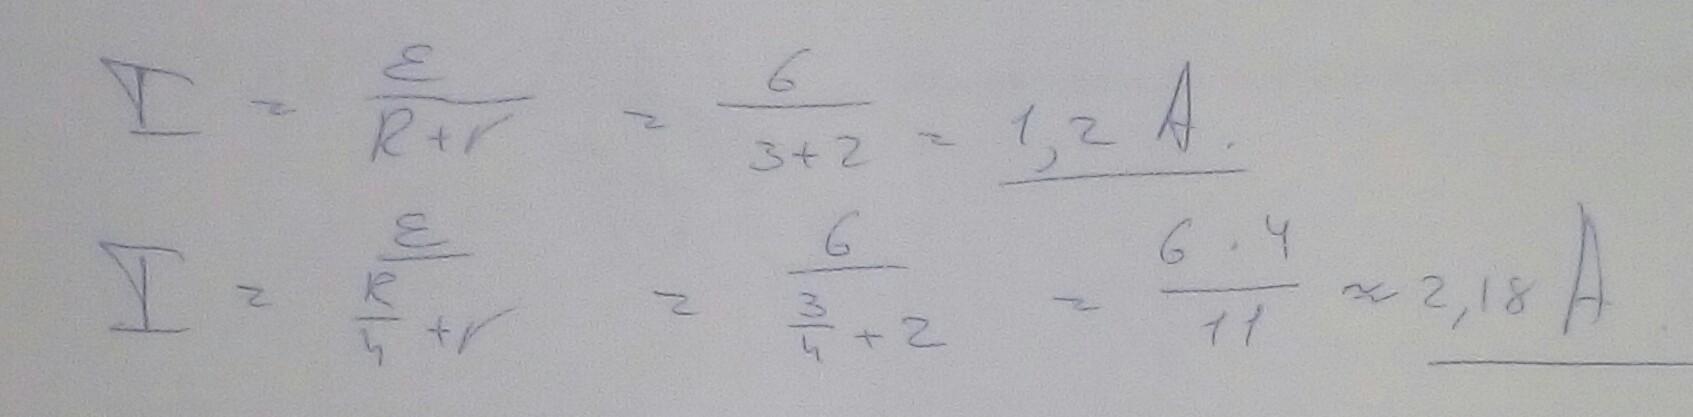 I = ε/(R+r) = 6/(3+2) = 1,2 A.
I = ε/(R/4 + r) = 6/(3/4 + 2) = (6 · 4)/11 ≈ 2,18 A